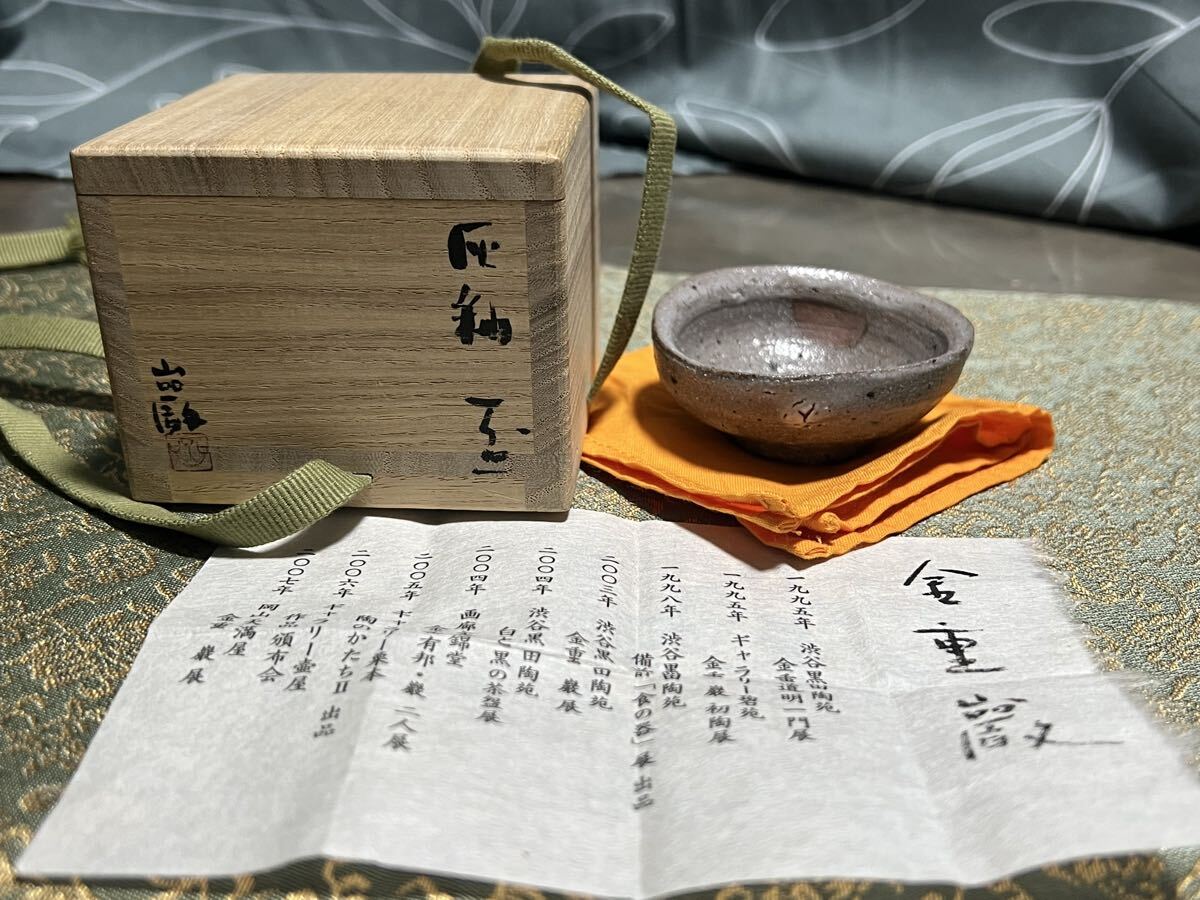 灰釉
巌
金重
巌
一九九五年 渋谷黒田陶苑
金重道明一門展
一九九五年 ギャラリー碧苑
金重巌初陶展
一九九八年 渋谷黒田陶苑
備前「食の器」展出品
二〇〇三年 渋谷黒田陶苑
金重巌展
二〇〇四年 渋谷黒田陶苑
白と黒の茶盌展
二〇〇四年 画廊錦堂
金重有邦・巌 二人展
二〇〇五年 ギャラリー
陶のかたちⅡ 出品
二〇〇六年 ギャラリー壷屋
作品頒布会
二〇〇七年 岡山天満屋
金重巌展